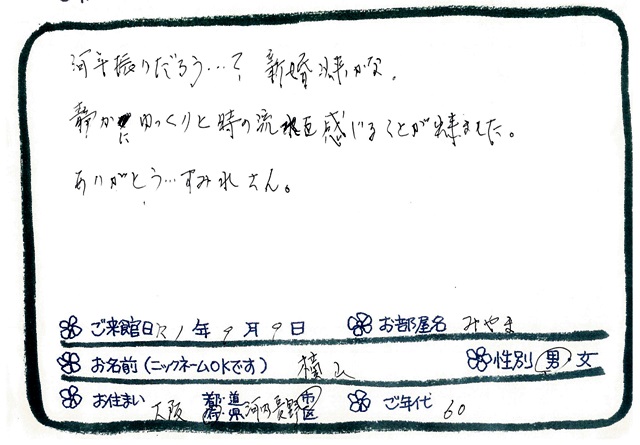 河年振りだろう…? 新婚以来かな。
静かにゆっくりと時の流れを感じることが出来ました。
ありがとう…すみれさん。
ご来館日 R1年9月9日 お部屋名 みやま
お名前(ニックネームOKです) 横山 性別 男・女
お住まい 大阪 都道府県 河内長野 市区 ご年代 60